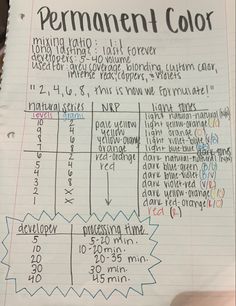 Permanent Color
mixing ratio : 1:1
long lasting : lasts forever
developers : 5-40 volume
used for : grey coverage, blonding, custom color,
intense reds, coppers, + violets
"2, 4, 6, 8, this is how we formulate!"
natural series NRP light tones
levels grams
10 2 light natural-natural
9 4 pale yellow light yellow-orange
8 6 yellow light orange
7 8 yellow-orange light violet-blue
orange light blue-blue dark tones
6 2 red-orange dark natural-natural
5 4 red dark blue-green
4 6 dark blue-violet
3 8 dark violet-red
2 X dark red-violet
1 X dark red-orange
red (R)
developer processing time
5 5-20 min.
10 10-20 min.
20 20-35 min.
30 30 min.
40 45 min.